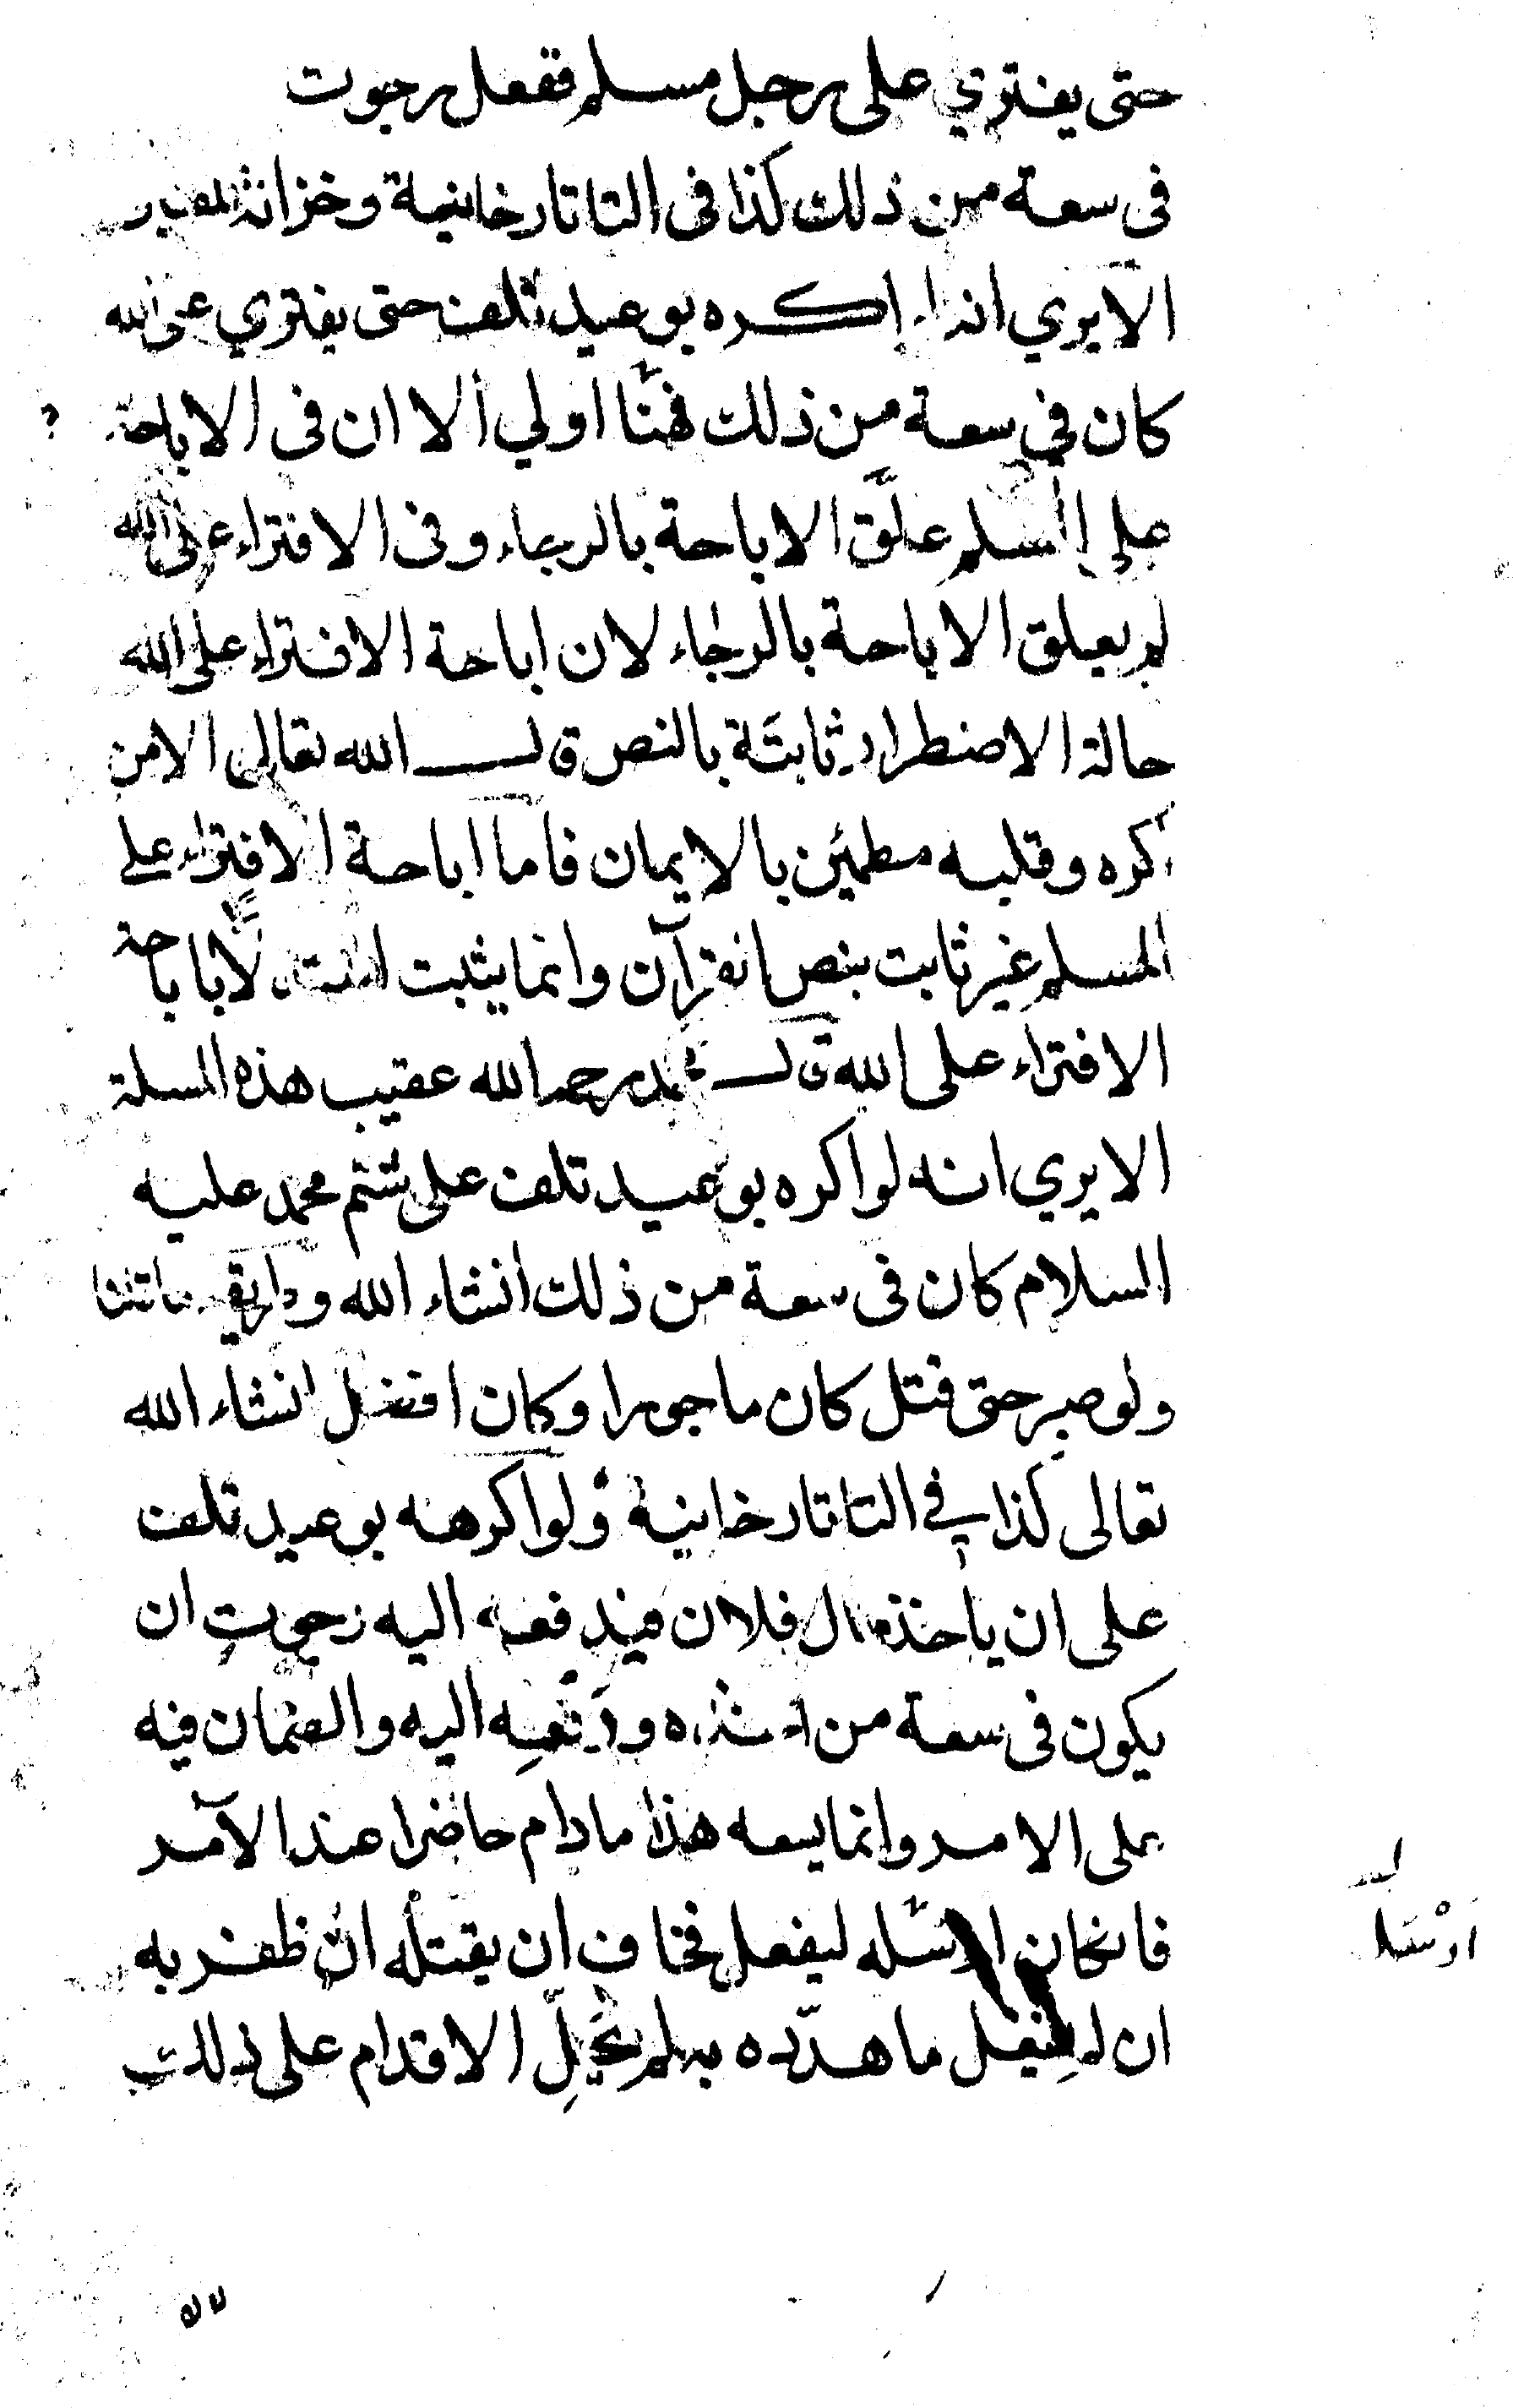 حتى يفتري على رجل مسلم ففعل رجوت
في سعة من ذلك كذا في التاتارخانية وخزانة
الا يري انه اكره بوعيد تلف حتى يفتري على الله
كان في سعة من ذلك فهنا اولي الا ان في الاباحة
على المسلم علّق الاباحة بالرجاء وفى الافتراء على الله
لم يعلق الاباحة بالرجاء لان اباحة الافتراء على الله
حالة الاضطرار ثابتة بالنص قال الله تعالى الا من
اكره وقلبه مطمئن بالايمان فاما اباحة الافتراء على
المسلم غير ثابت بنص القرآن وانما يثبت باباحة
الافتراء على الله قال محمد رحمه الله عقيب هذه المسلة
الا يري انه لو اكره بوعيد تلف على شتم محمد عليه
السلام كان فى سعة من ذلك انشاء الله
ولو صبر حتى قتل كان ماجورا وكان افضل انشاء الله
تعالى كذا في التاتارخانية ولو اكرهه بوعيد تلف
على ان ياخذ مال فلان فيدفعه اليه رجوت ان
يكون فى سعة من اخذه ودفعه اليه والضمان فيه
على الامر وانما يسعه هذا ما دام حاضرا عند الآمر
فانكان ارسله ليفعل فخاف ان يقتله ان ظفر به
ان لم يفعل ما هدّده به لم يحلّ الاقدام على ذلك
ارْسَله
٥٧